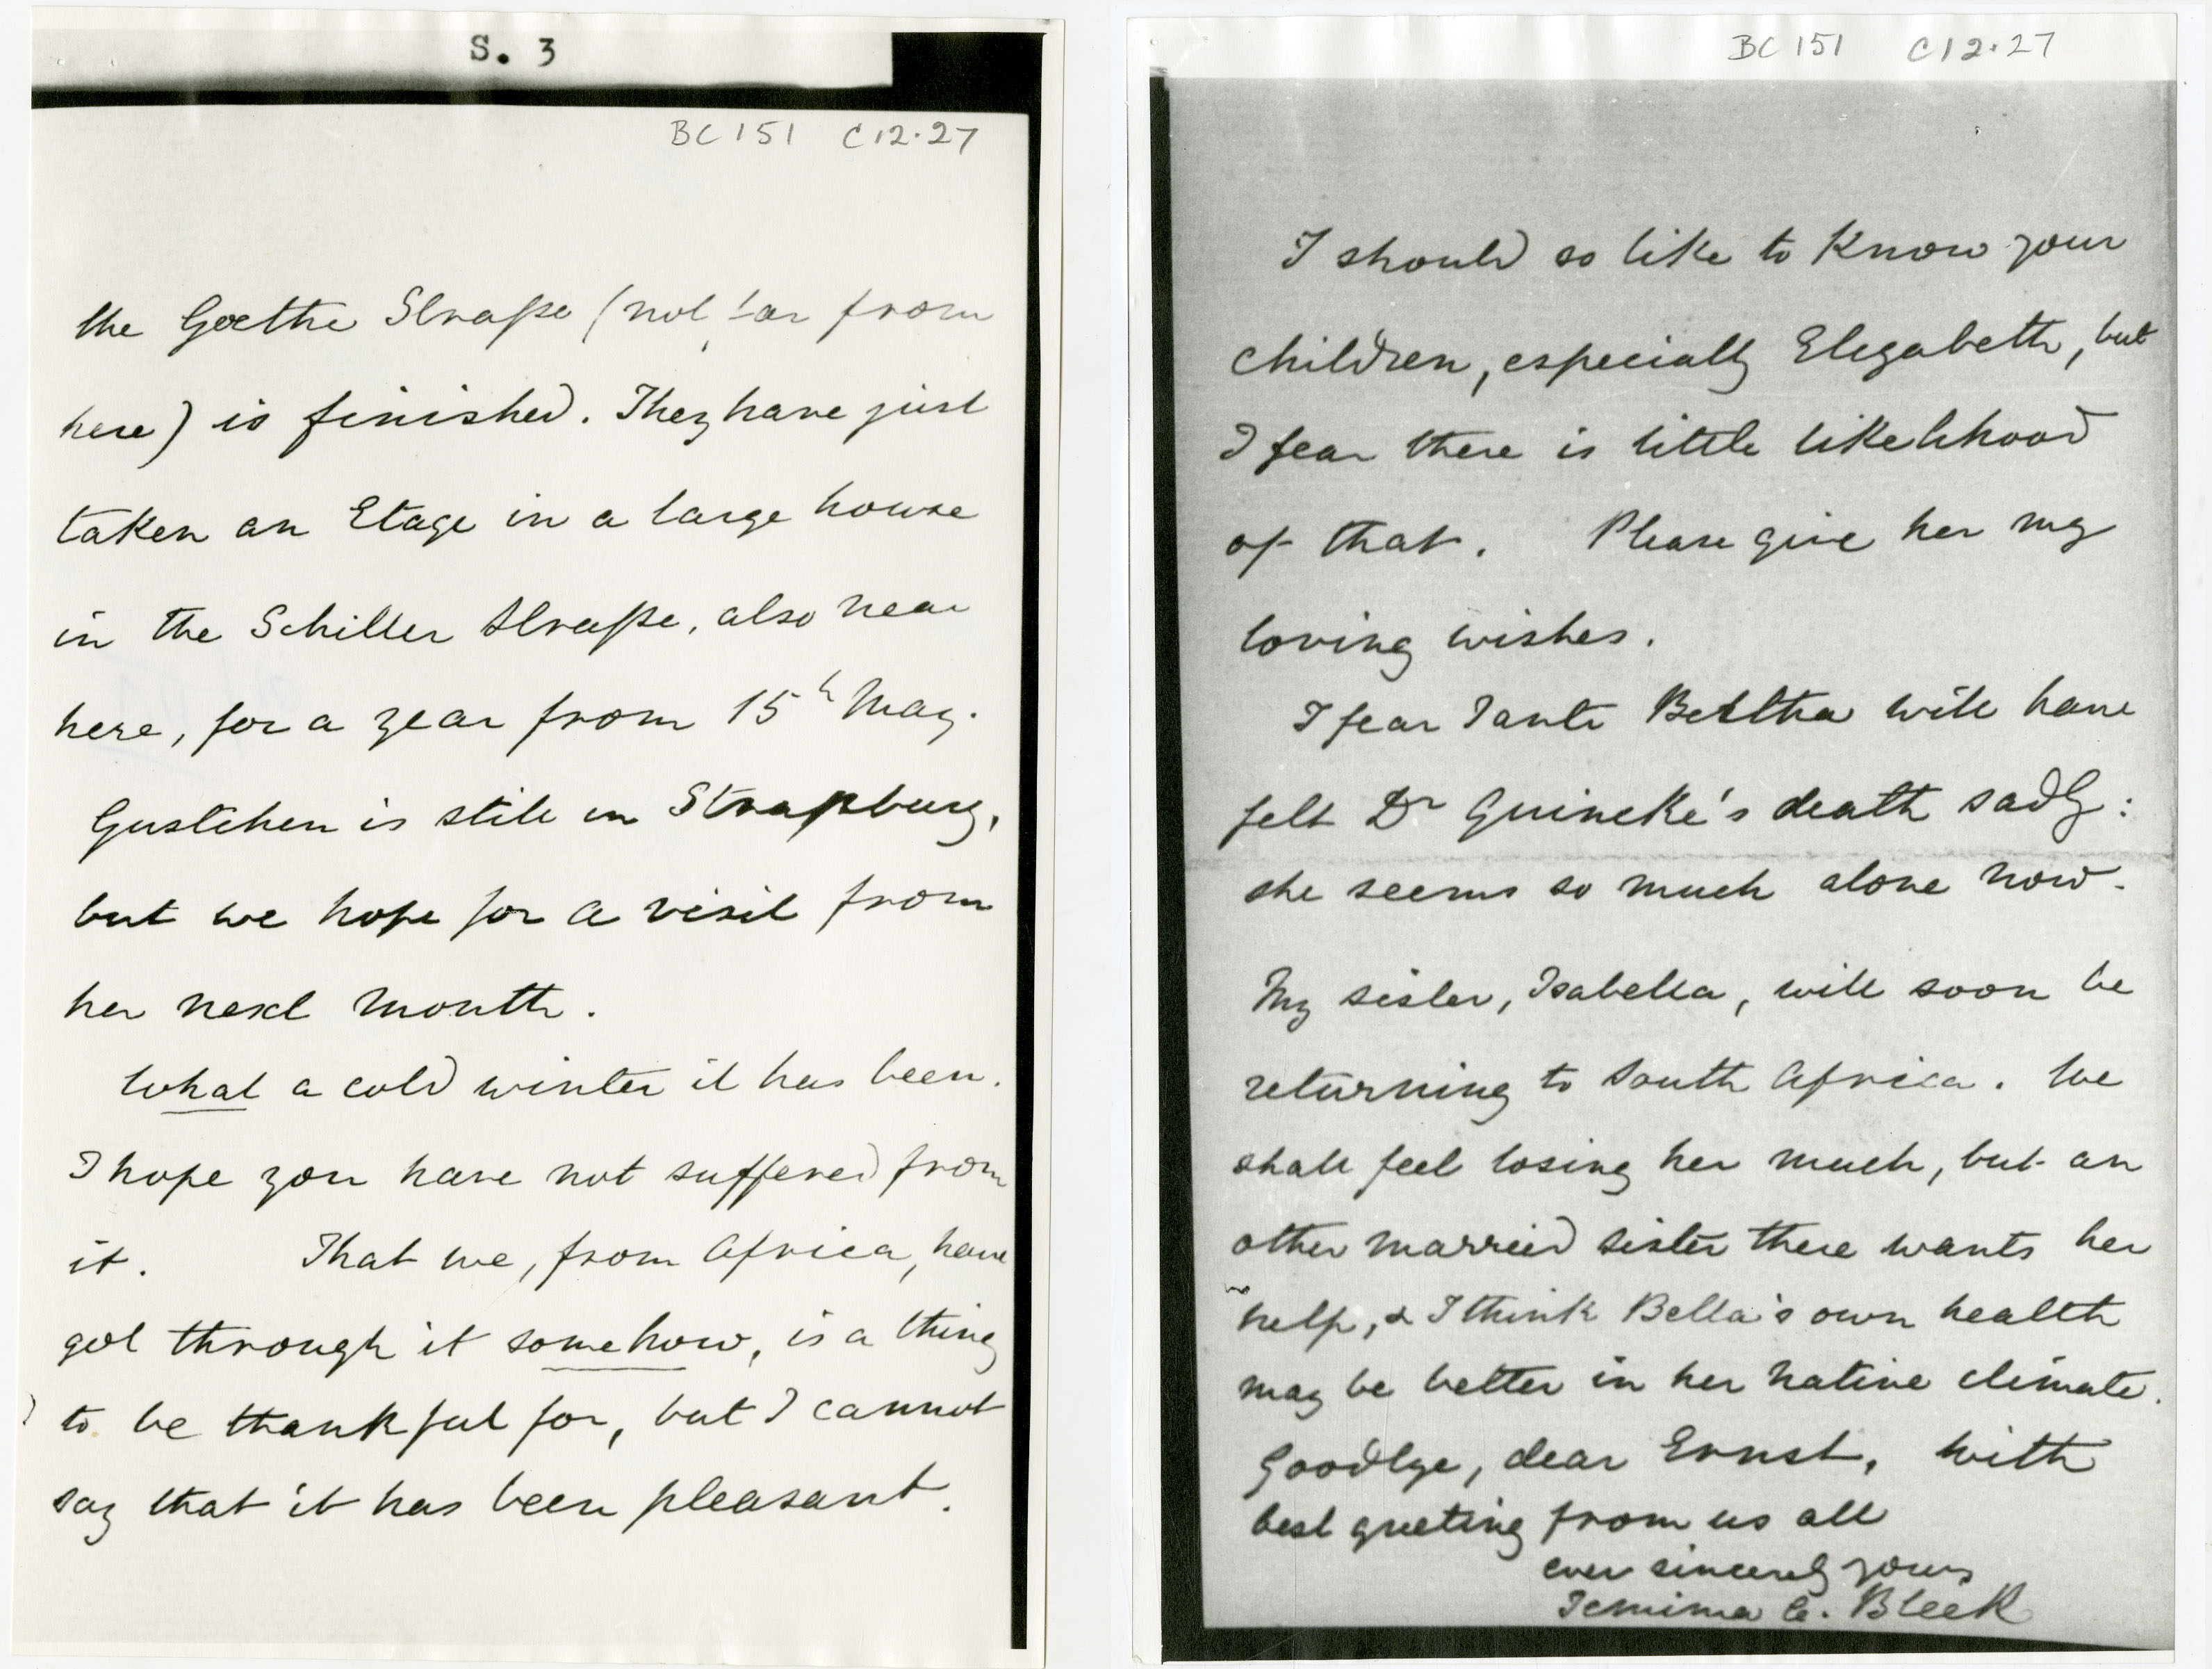 S. 3
BC 151 C12.27
the Goethe Straße (not far from
here) is finished. They have just
taken an Etage in a large house
in the Schiller Straße, also near
here, for a year from 15th May.
Gustchen is still in Straßburg,
but we hope for a visit from
her next month.
What a cold winter it has been.
I hope you have not suffered from
it. That we, from Africa, have
got through it somehow, is a thing
to be thankful for, but I cannot
say that it has been pleasant.
BC 151 C12.27
I should so like to know your
children, especially Elizabeth, but
I fear there is little likelihood
of that. Please give her my
loving wishes.
I fear Tante Bertha will have
felt Dr Quincke's death sadly:
she seems so much alone now.
My sister, Isabella, will soon be
returning to South Africa. We
shall feel losing her much, but an
other married sister there wants her
help, & I think Bella's own health
may be better in her native climate.
Goodbye, dear Ernst, with
best greeting from us all
ever sincerely yours
Jemima C. Bleek